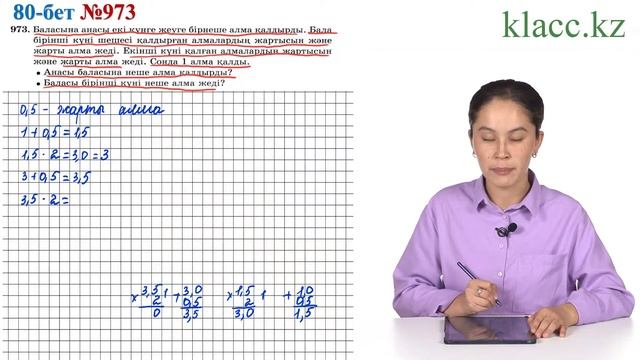 80-бет №973
klacc.kz
973. Баласына анасы екі күнге жеуге бірнеше алма қалдырды. Бала
бірінші күні шешесі қалдырған алмалардың жартысын және
жарты алма жеді. Екінші күні қалған алмалардың жартысын
және жарты алма жеді. Сонда 1 алма қалды.
• Анасы баласына неше алма қалдырды?
• Баласы бірінші күні неше алма жеді?
0,5 - жарты алма
1 + 0,5 = 1,5
1,5 · 2 = 3,0 = 3
3 + 0,5 = 3,5
3,5 · 2 =
× 3,5 1 + 3,0 × 1,5 1 + 1,0
2 0,5 2 0,5
0 3,5 3,0 1,5